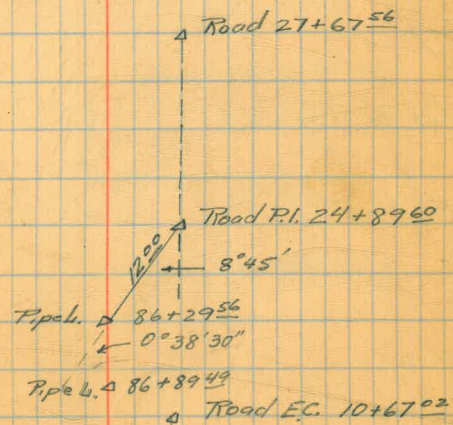 Road 27+67 56
Road P.I. 24+89 60
12 00
8°45'
Pipe L. 86+29 56
0°38'30"
Pipe L. 86+89 49
Road E.C. 10+67 02